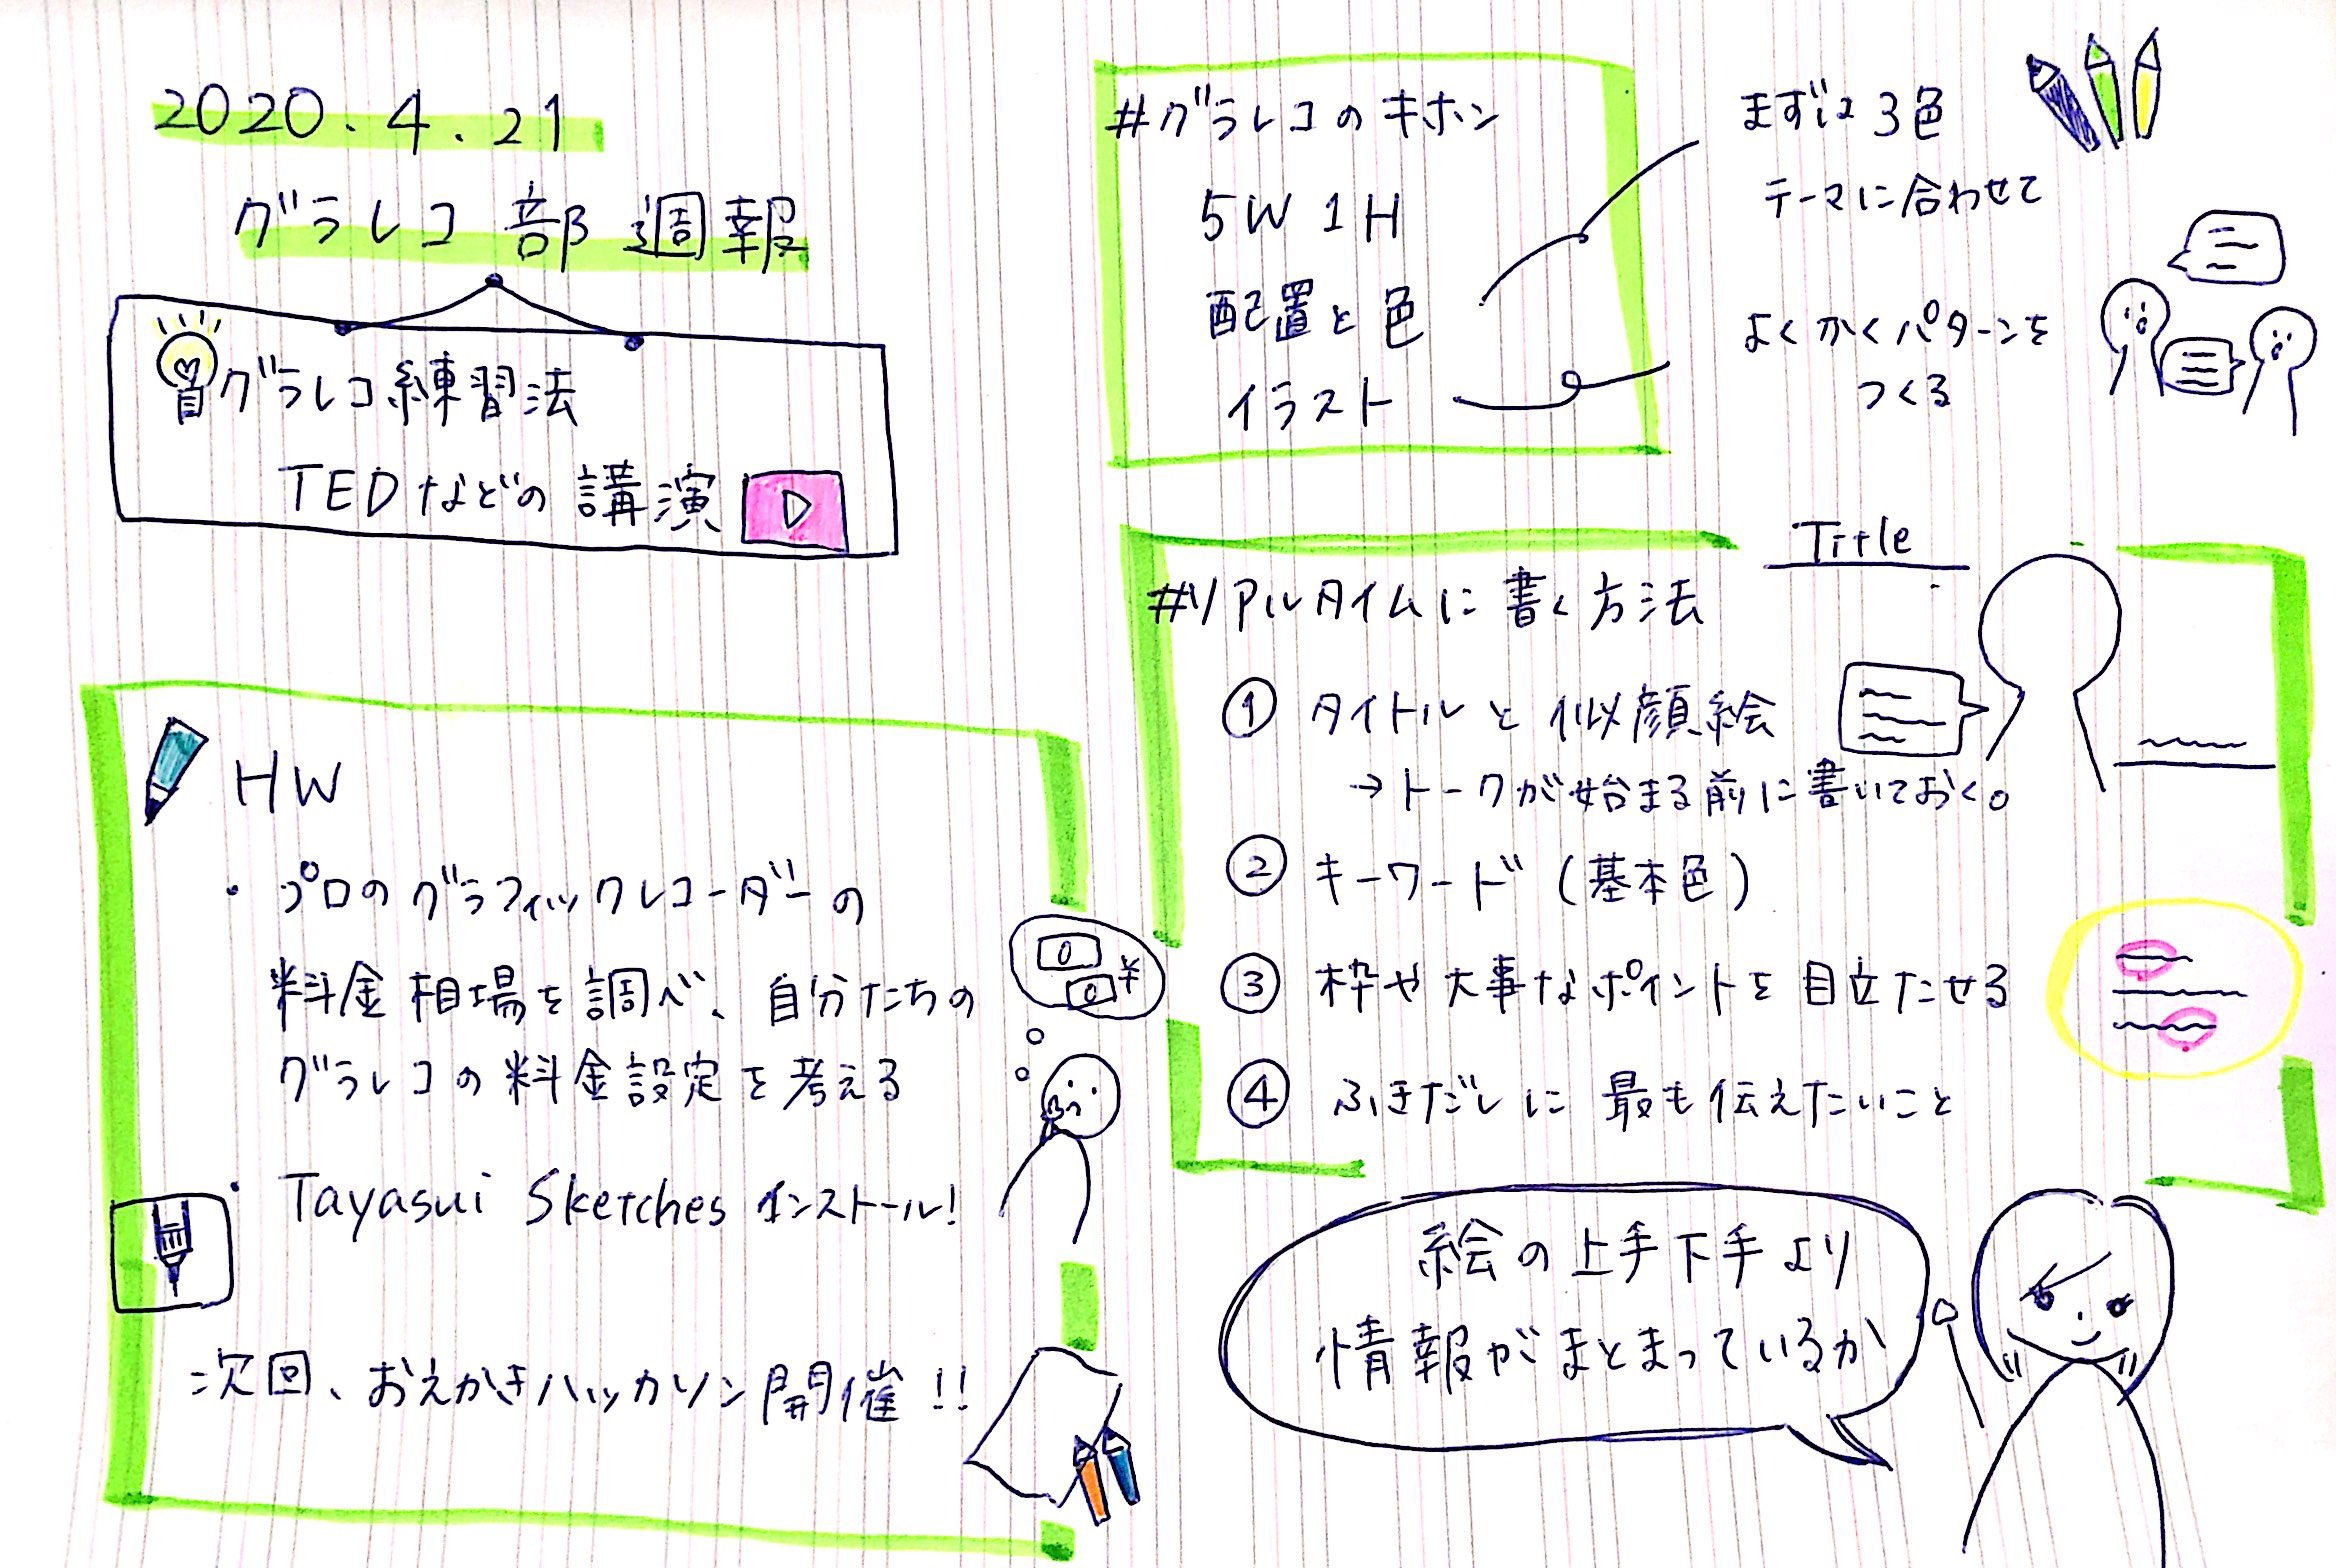 2020.4.21
グラレコ部 週報
グラレコ練習法
TEDなどの講演
HW
・プロのグラフィックレコーダーの
料金相場を調べ、自分たちの
グラレコの料金設定を考える
¥
・Tayasui Sketches インストール!
次回、おえかきハッカソン開催!!
#グラレコのキホン
5W1H
配置と色
イラスト
まずは3色
テーマに合わせて
よくかくパターンを
つくる
Title
#リアルタイムに書く方法
① タイトルと似顔絵
→トークが始まる前に書いておく。
② キーワード(基本色)
③ 枠や大事なポイントを目立たせる
④ ふきだしに最も伝えたいこと
絵の上手下手より
情報がまとまっているか